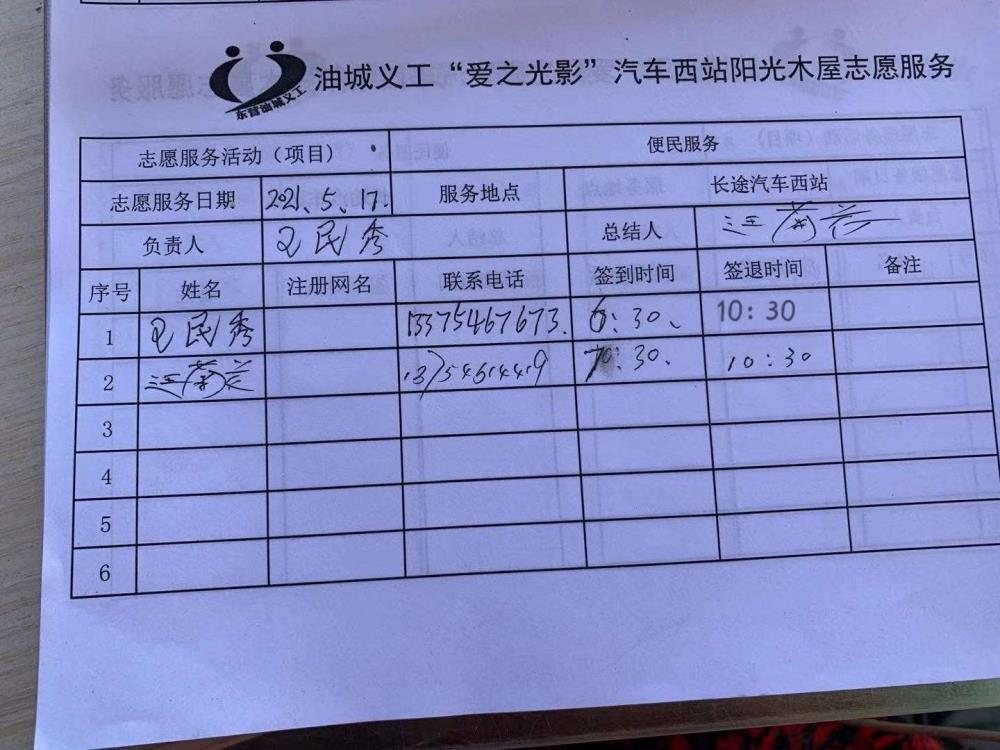 油城义工“爱之光影”汽车西站阳光木屋志愿服务
东营油城义工
志愿服务活动（项目） 便民服务
志愿服务日期 2021.5.17. 服务地点 长途汽车西站
负责人 民秀 总结人 汪菊兰
序号 姓名 注册网名 联系电话 签到时间 签退时间 备注
1 民秀 13375467673. 6:30、 10:30
2 汪菊兰 :30、 10:30
3
4
5
6